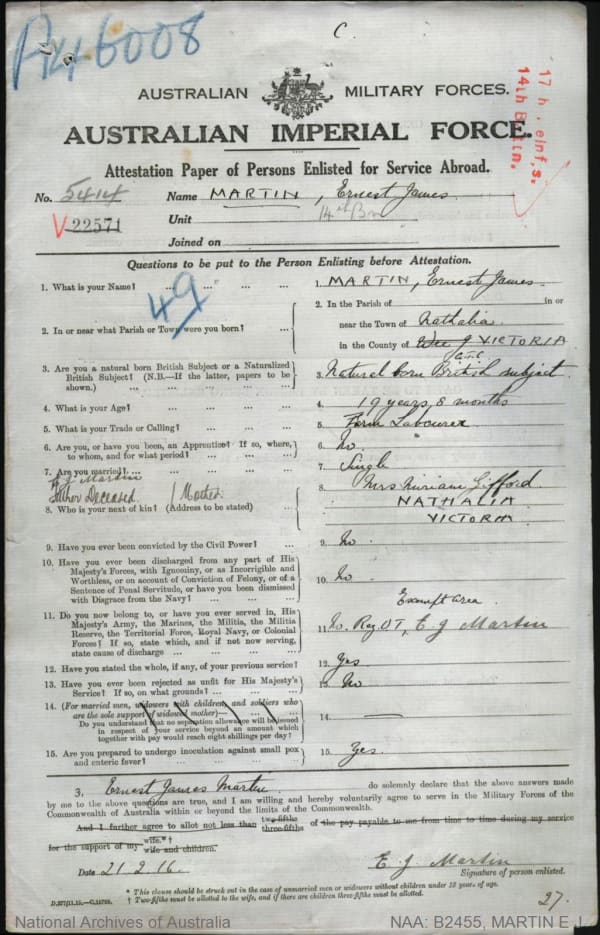 A46008
C.
AUSTRALIAN MILITARY FORCES.
AUSTRALIAN IMPERIAL FORCE.
17th Reinf,s.
14th B tn.
Attestation Paper of Persons Enlisted for Service Abroad.
No. 5414 Name MARTIN, Ernest James
V 22571 Unit 14th Bn
Joined on
Questions to be put to the Person Enlisting before Attestation.
1. What is your Name? ... 1. MARTIN, Ernest James.
49
2. In or near what Parish or Town were you born? ... 2. In the Parish of in or
near the Town of Nathalia
in the County of VICTORIA
3. Are you a natural born British Subject or a Naturalized
British Subject? (N.B.—If the latter, papers to be
shown.) ... 3. Natural born British subject.
4. What is your Age? ... 4. 19 years, 8 months
5. What is your Trade or Calling? ... 5. Farm Labourer
6. Are you, or have you been, an Apprentice? If so, where,
to whom, and for what period? ... 6. No.
7. Are you married? ... 7. Single
E J Martin
Father Deceased. / Mother.
8. Who is your next of kin? (Address to be stated) ... 8. Mrs Miriam Gifford
NATHALIA
VICTORIA
9. Have you ever been convicted by the Civil Power? ... 9. No.
10. Have you ever been discharged from any part of His
Majesty's Forces, with Ignominy, or as Incorrigible and
Worthless, or on account of Conviction of Felony, or of a
Sentence of Penal Servitude, or have you been dismissed
with Disgrace from the Navy? ... 10. No.
11. Do you now belong to, or have you ever served in, His
Majesty's Army, the Marines, the Militia, the Militia
Reserve, the Territorial Force, Royal Navy, or Colonial
Forces? If so, state which, and if not now serving,
state cause of discharge ... Exempt area
11. No. Reg. OT, E. J Martin
12. Have you stated the whole, if any, of your previous service? 12. Yes
13. Have you ever been rejected as unfit for His Majesty's
Service? If so, on what grounds? ... 13. No
14. (For married men, widowers with children, and soldiers who
are the sole support of widowed mother)—
Do you understand that no separation allowance will be issued
in respect of your service beyond an amount which
together with pay would reach eight shillings per day? 14. —
15. Are you prepared to undergo inoculation against small pox
and enteric fever? ... 15. Yes.
3, Ernest James Martin do solemnly declare that the above answers made
by me to the above questions are true, and I am willing and hereby voluntarily agree to serve in the Military Forces of the
Commonwealth of Australia within or beyond the limits of the Commonwealth.
And I further agree to allot not less than two-fifths three-fifths of the pay payable to me from time to time during my service
for the support of my wife.*† wife and children.
Date 21.2.16. E. J Martin
Signature of person enlisted.
* This clause should be struck out in the case of unmarried men or widowers without children under 18 years of age.
† Two-fifths must be allotted to the wife, and if there are children three-fifths must be allotted.
27.
National Archives of Australia NAA: B2455, MARTIN E J